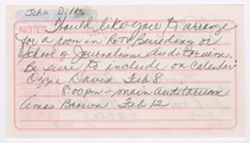 John Dilks
NOTES
Would like you to arrange
for a room in Roth Building or
School of Journalism Auditorium.
Be sure to include on calendar
Ozzie Davis Feb 8
8:00 pm - main auditorium
Amos Brown Feb 12